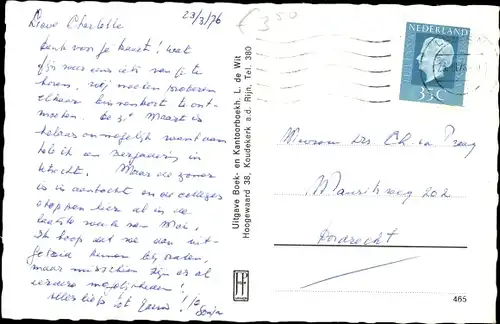 23/3/'76
£ 350
Lieve Charlotte
dank voor je kaart! Wat
fijn weer eens iets van je te
horen. Wij moeten proberen
elkaar binnenkort te ont-
moeten. De 31 Maart is
helaas onmogelijk want dan
heb ik een vergadering in
Utrecht. Maar de zomer
is in aantocht en de colleges
stoppen hier al in de
laatste week van Mei.
Ik hoop dat we dan uit-
gebreid kunnen bijpraten,
maar misschien zijn er al
eerdere mogelijkheden!
Alles liefs tot gauw!
Uitgave Boek- en Kantoorboekh. L. de Wit
Hoogewaard 38, Koudekerk a.d. Rijn, Tel. 380
NEDERLAND
35C
Mevrouw Drs. Ch. van Praag
Mauritsweg 202
Dordrecht
465